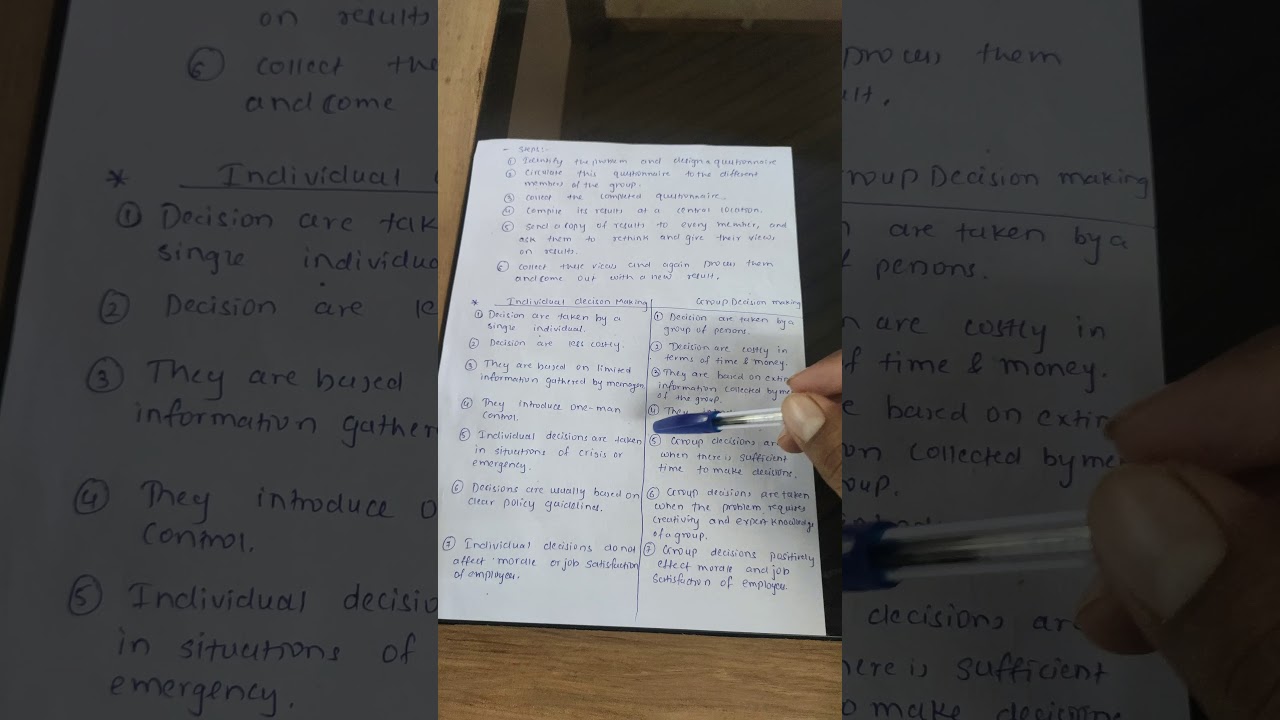 - Steps:-
① Identify the problem and design a questionnaire
② circulate this questionnaire to the different
members of the group.
③ collect the completed questionnaire.
④ Compile its results at a central location.
⑤ send a copy of results to every member, and
ask them to rethink and give their views
on results.
⑥ collect these views and again process them
and come out with a new result.
* Individual decison Making
① Decision are taken by a
single individual.
② Decision are less costly.
③ They are based on limited
information gathered by manager.
④ They introduce one-man
control.
⑤ Individual decisions are taken
in situations of crisis or
emergency.
⑥ Decisions are usually based on
clear policy guidelines.
⑦ Individual decisions do not
affect morale or job satisfaction
of employees.
Group Decision making
① Decision are taken by a
group of persons.
② Decision are costly in
terms of time & money.
③ They are based on
information collected by
of the group.
④ They
⑤ Group decisions are
when there is sufficient
time to make decisions.
⑥ Group decisions are taken
when the problem requires
creativity and expert knowledge
of a group.
⑦ Group decisions positively
effect morale and job
satisfaction of employees.